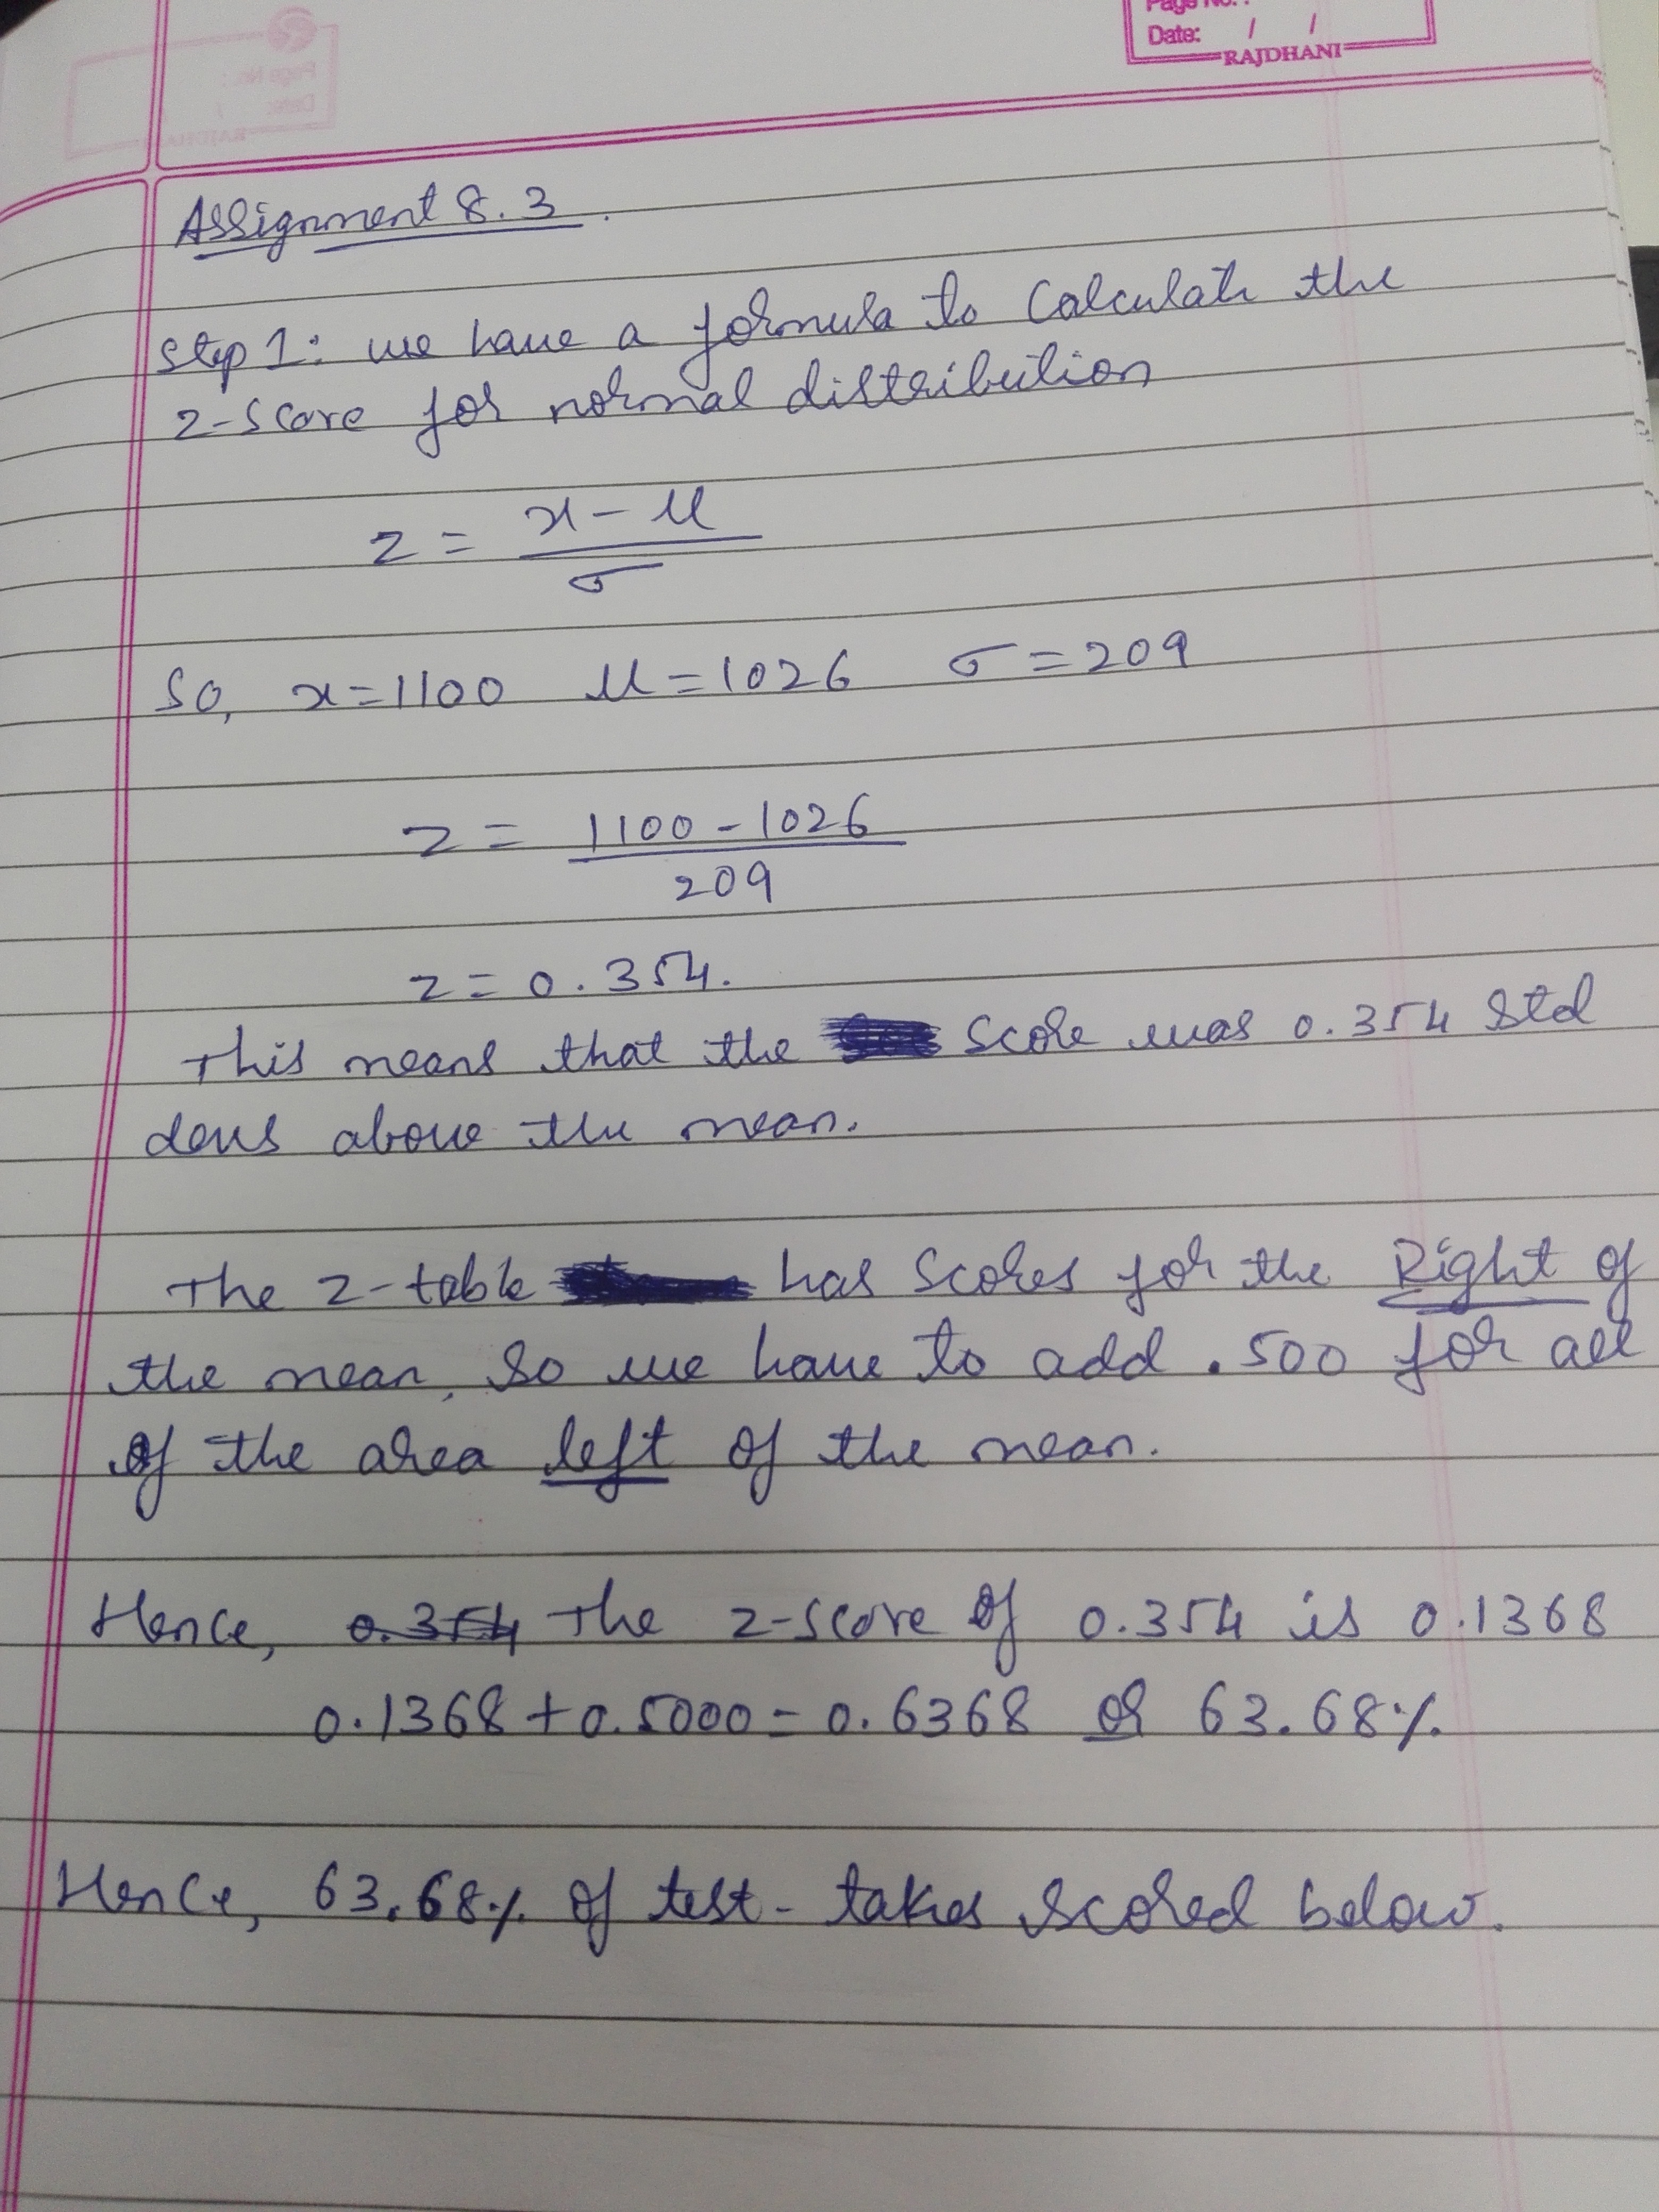 Page No.:
Date: / /
RAJDHANI
Assignment 8.3
Step 1: we have a formula to calculate the
z-score for normal distribution
z = x - μ
σ
So, x=1100 μ=1026 σ=209
z = 1100 - 1026
209
z = 0.354.
This means that the score was 0.354 std
devs above the mean.
The z-table has scores for the Right of
the mean, so we have to add .500 for all
of the area left of the mean.
Hence, 0.354 the z-score of 0.354 is 0.1368
0.1368 + 0.5000 = 0.6368 or 63.68%
Hence, 63.68% of test-takes scored below.